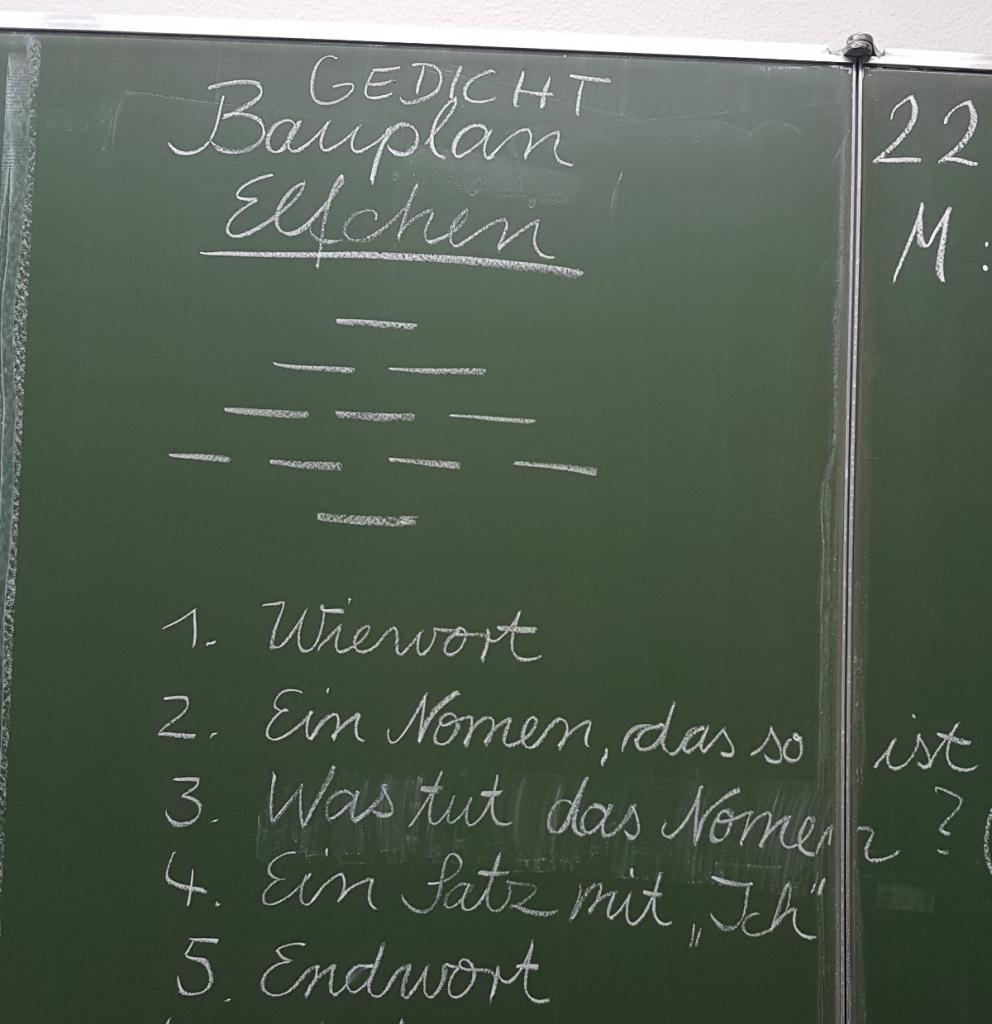 GEDICHT
Bauplan
Elfchen
1. Wiewort
2. Ein Nomen, das so ist
3. Was tut das Nomen?
4. Ein Satz mit „Ich“
5. Endwort
22
M: